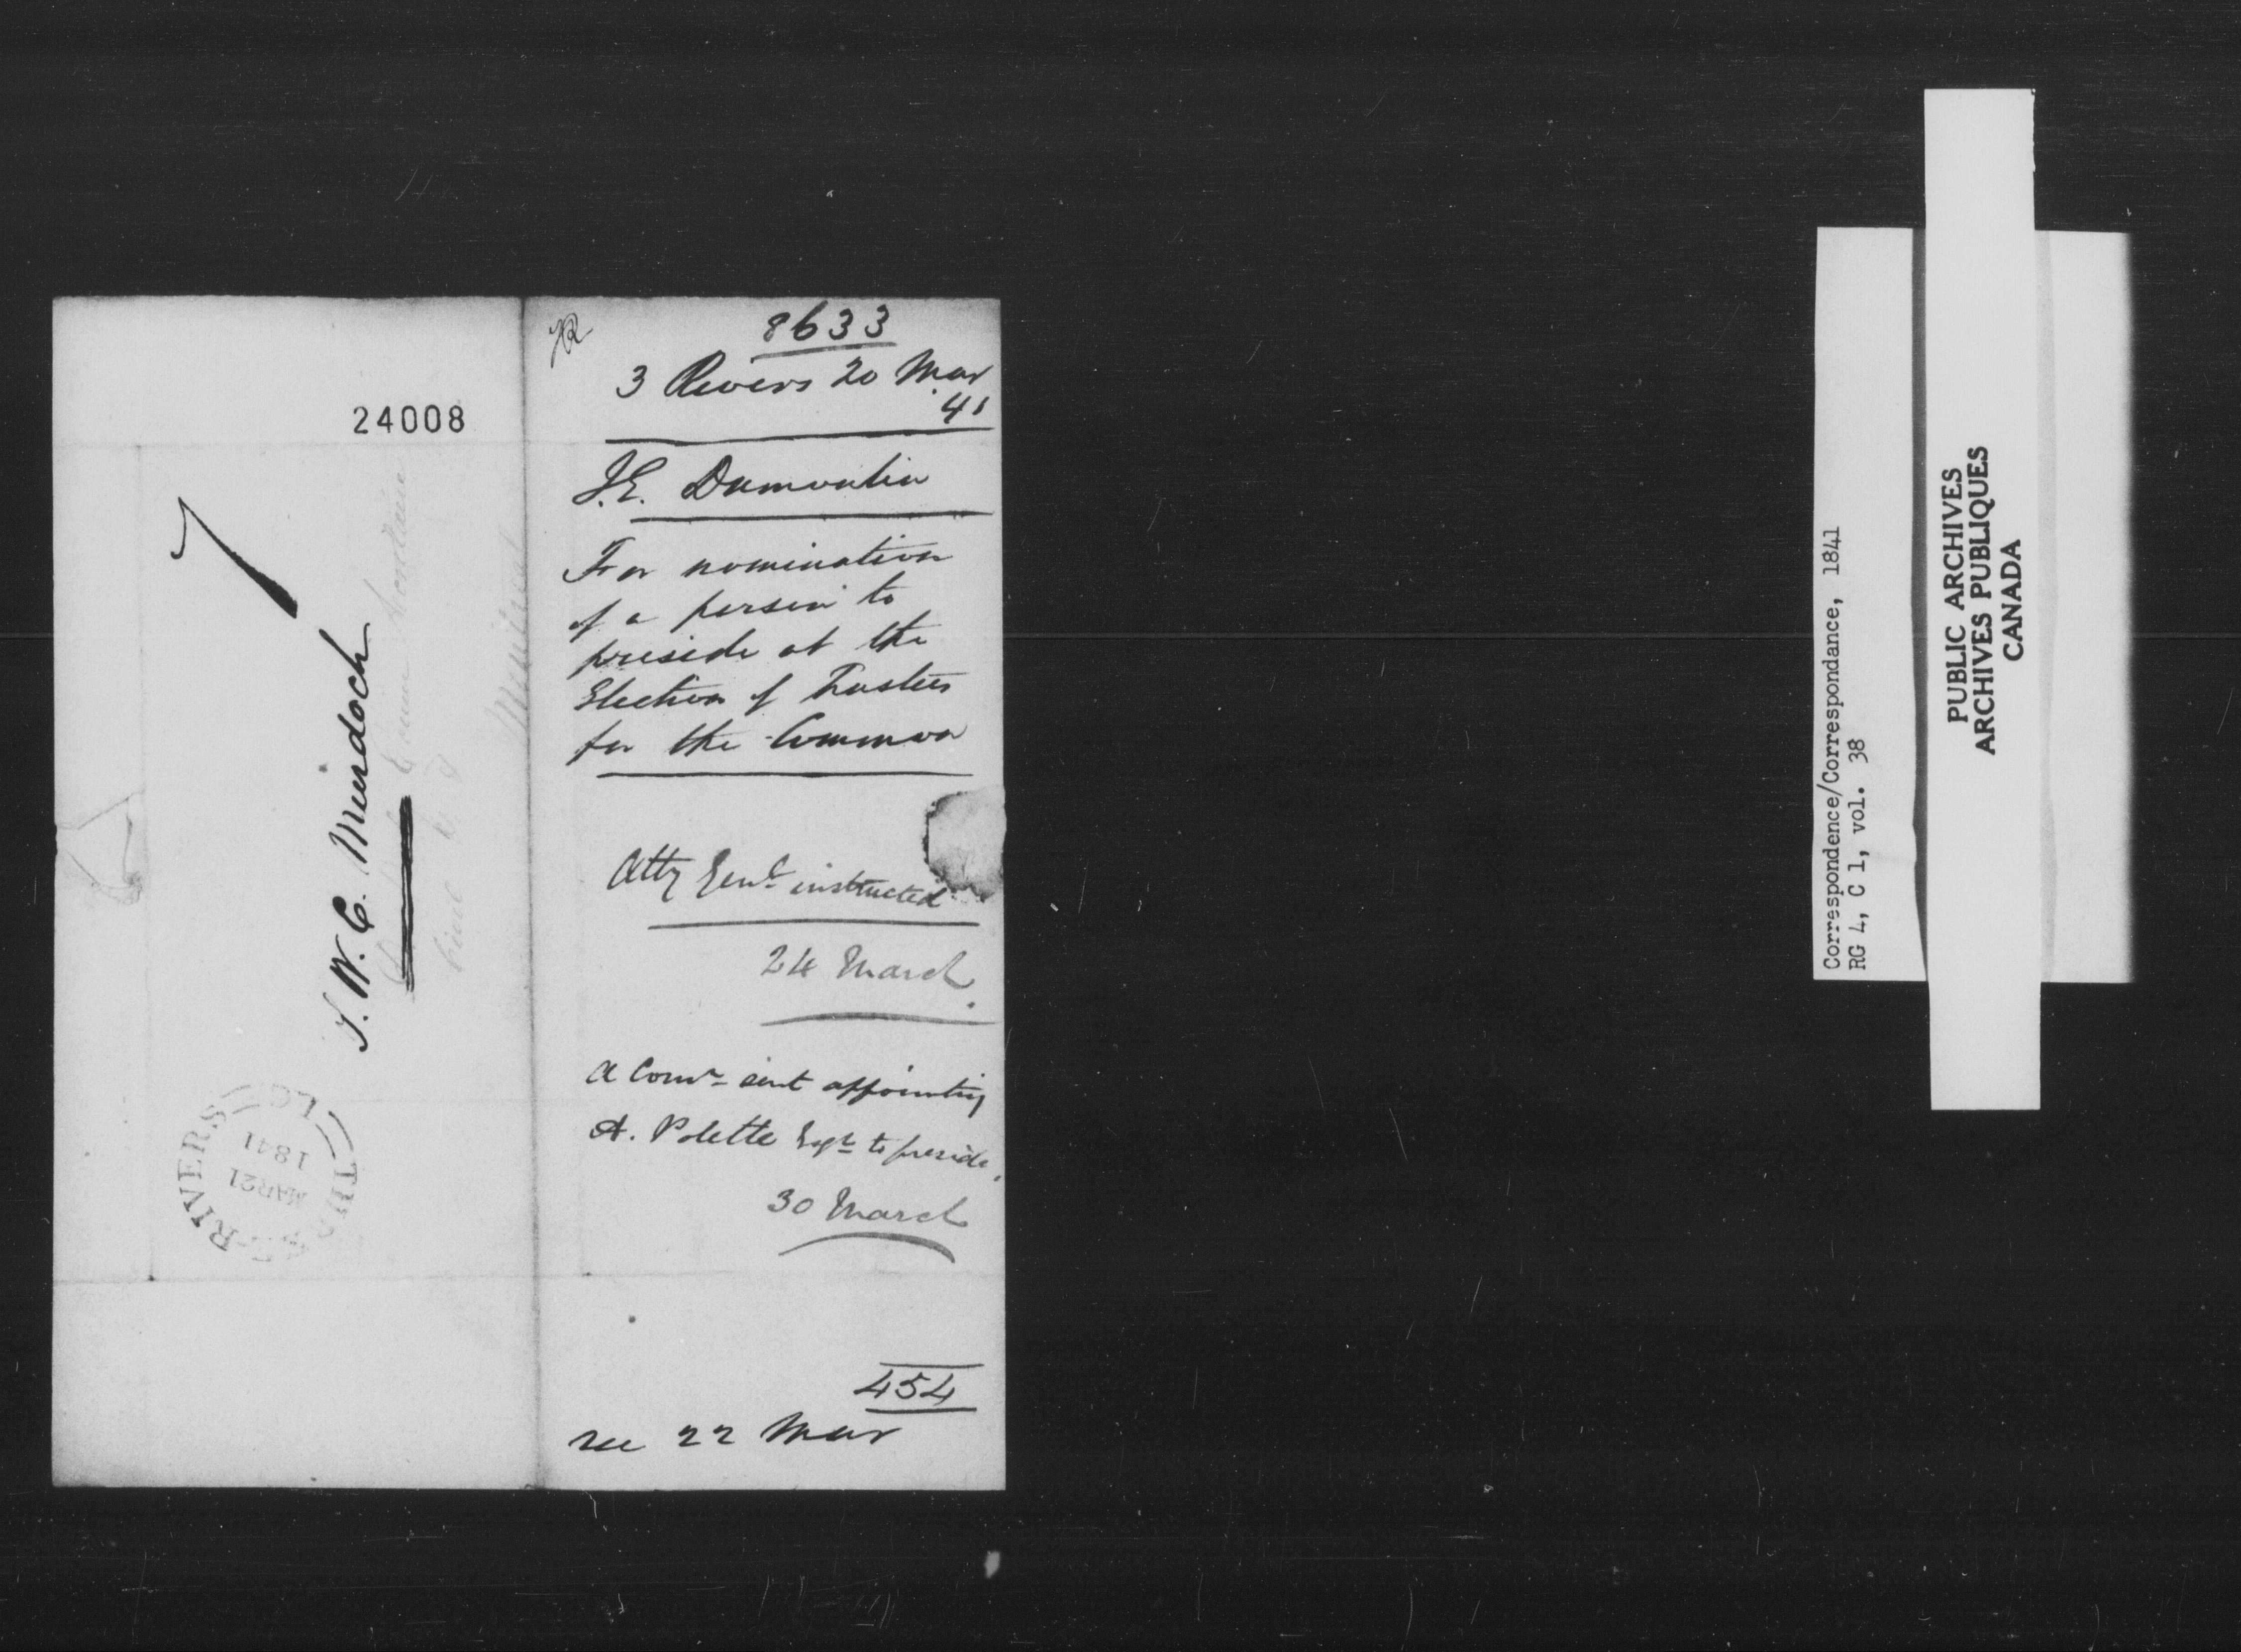 24008
T. W. C. Murdoch
THREE-RIVERS L.C.
MAR 21
1841
8633
3 Rivers 20 Mar
41
J.E. Dumoulin
For nomination
of a person to
preside at the
Election of Trustees
for the Common
Atty Genl instructed
24 March
A Comn sent appointing
A. Polette Esqr to preside.
30 March
454
rec 22 Mar
Correspondence/Correspondance, 1841
RG 4, C 1, vol. 38
PUBLIC ARCHIVES
ARCHIVES PUBLIQUES
CANADA